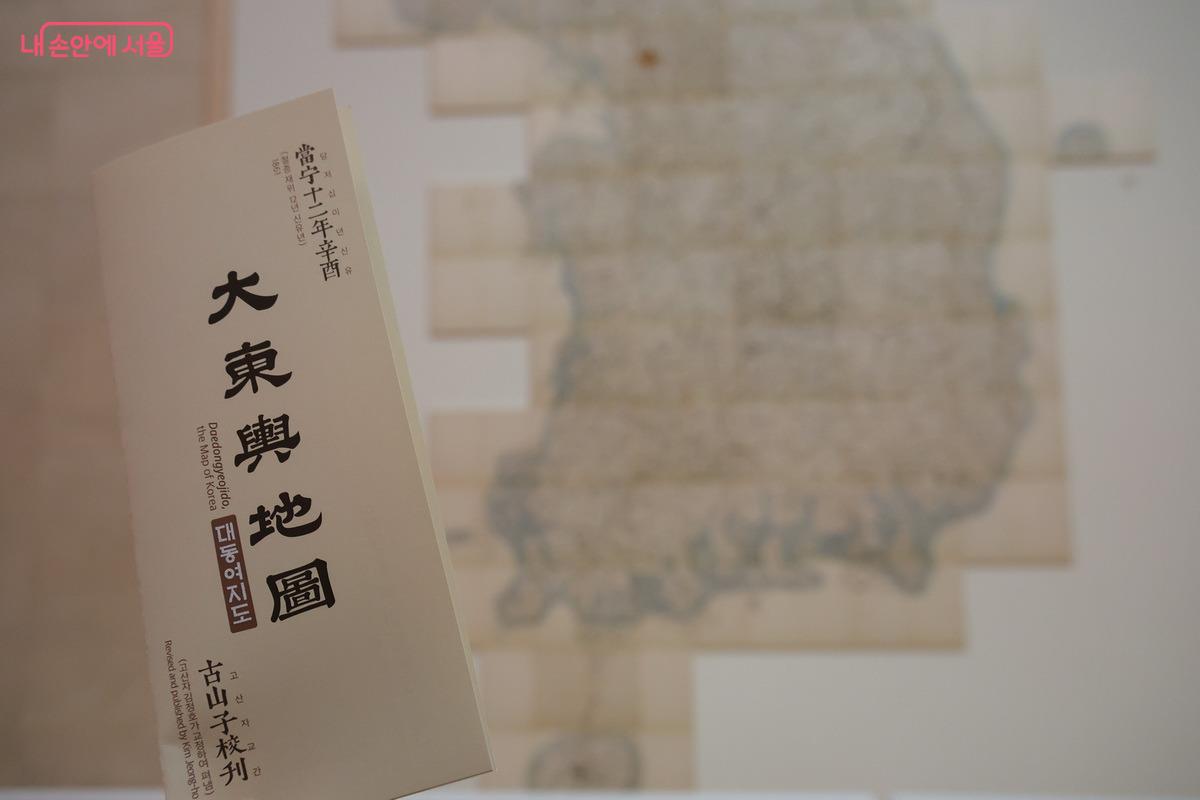 내 손안에 서울
當宁十二年辛酉
당저십이년신유
(철종 재위 12년 신유년)
1861
大東輿地圖
Daedongyeojido,
the Map of Korea
대동여지도
古山子校刊
고산자교간
(고산자 김정호가 교정하여 펴냄)
Revised and published by Kim Jeong-ho